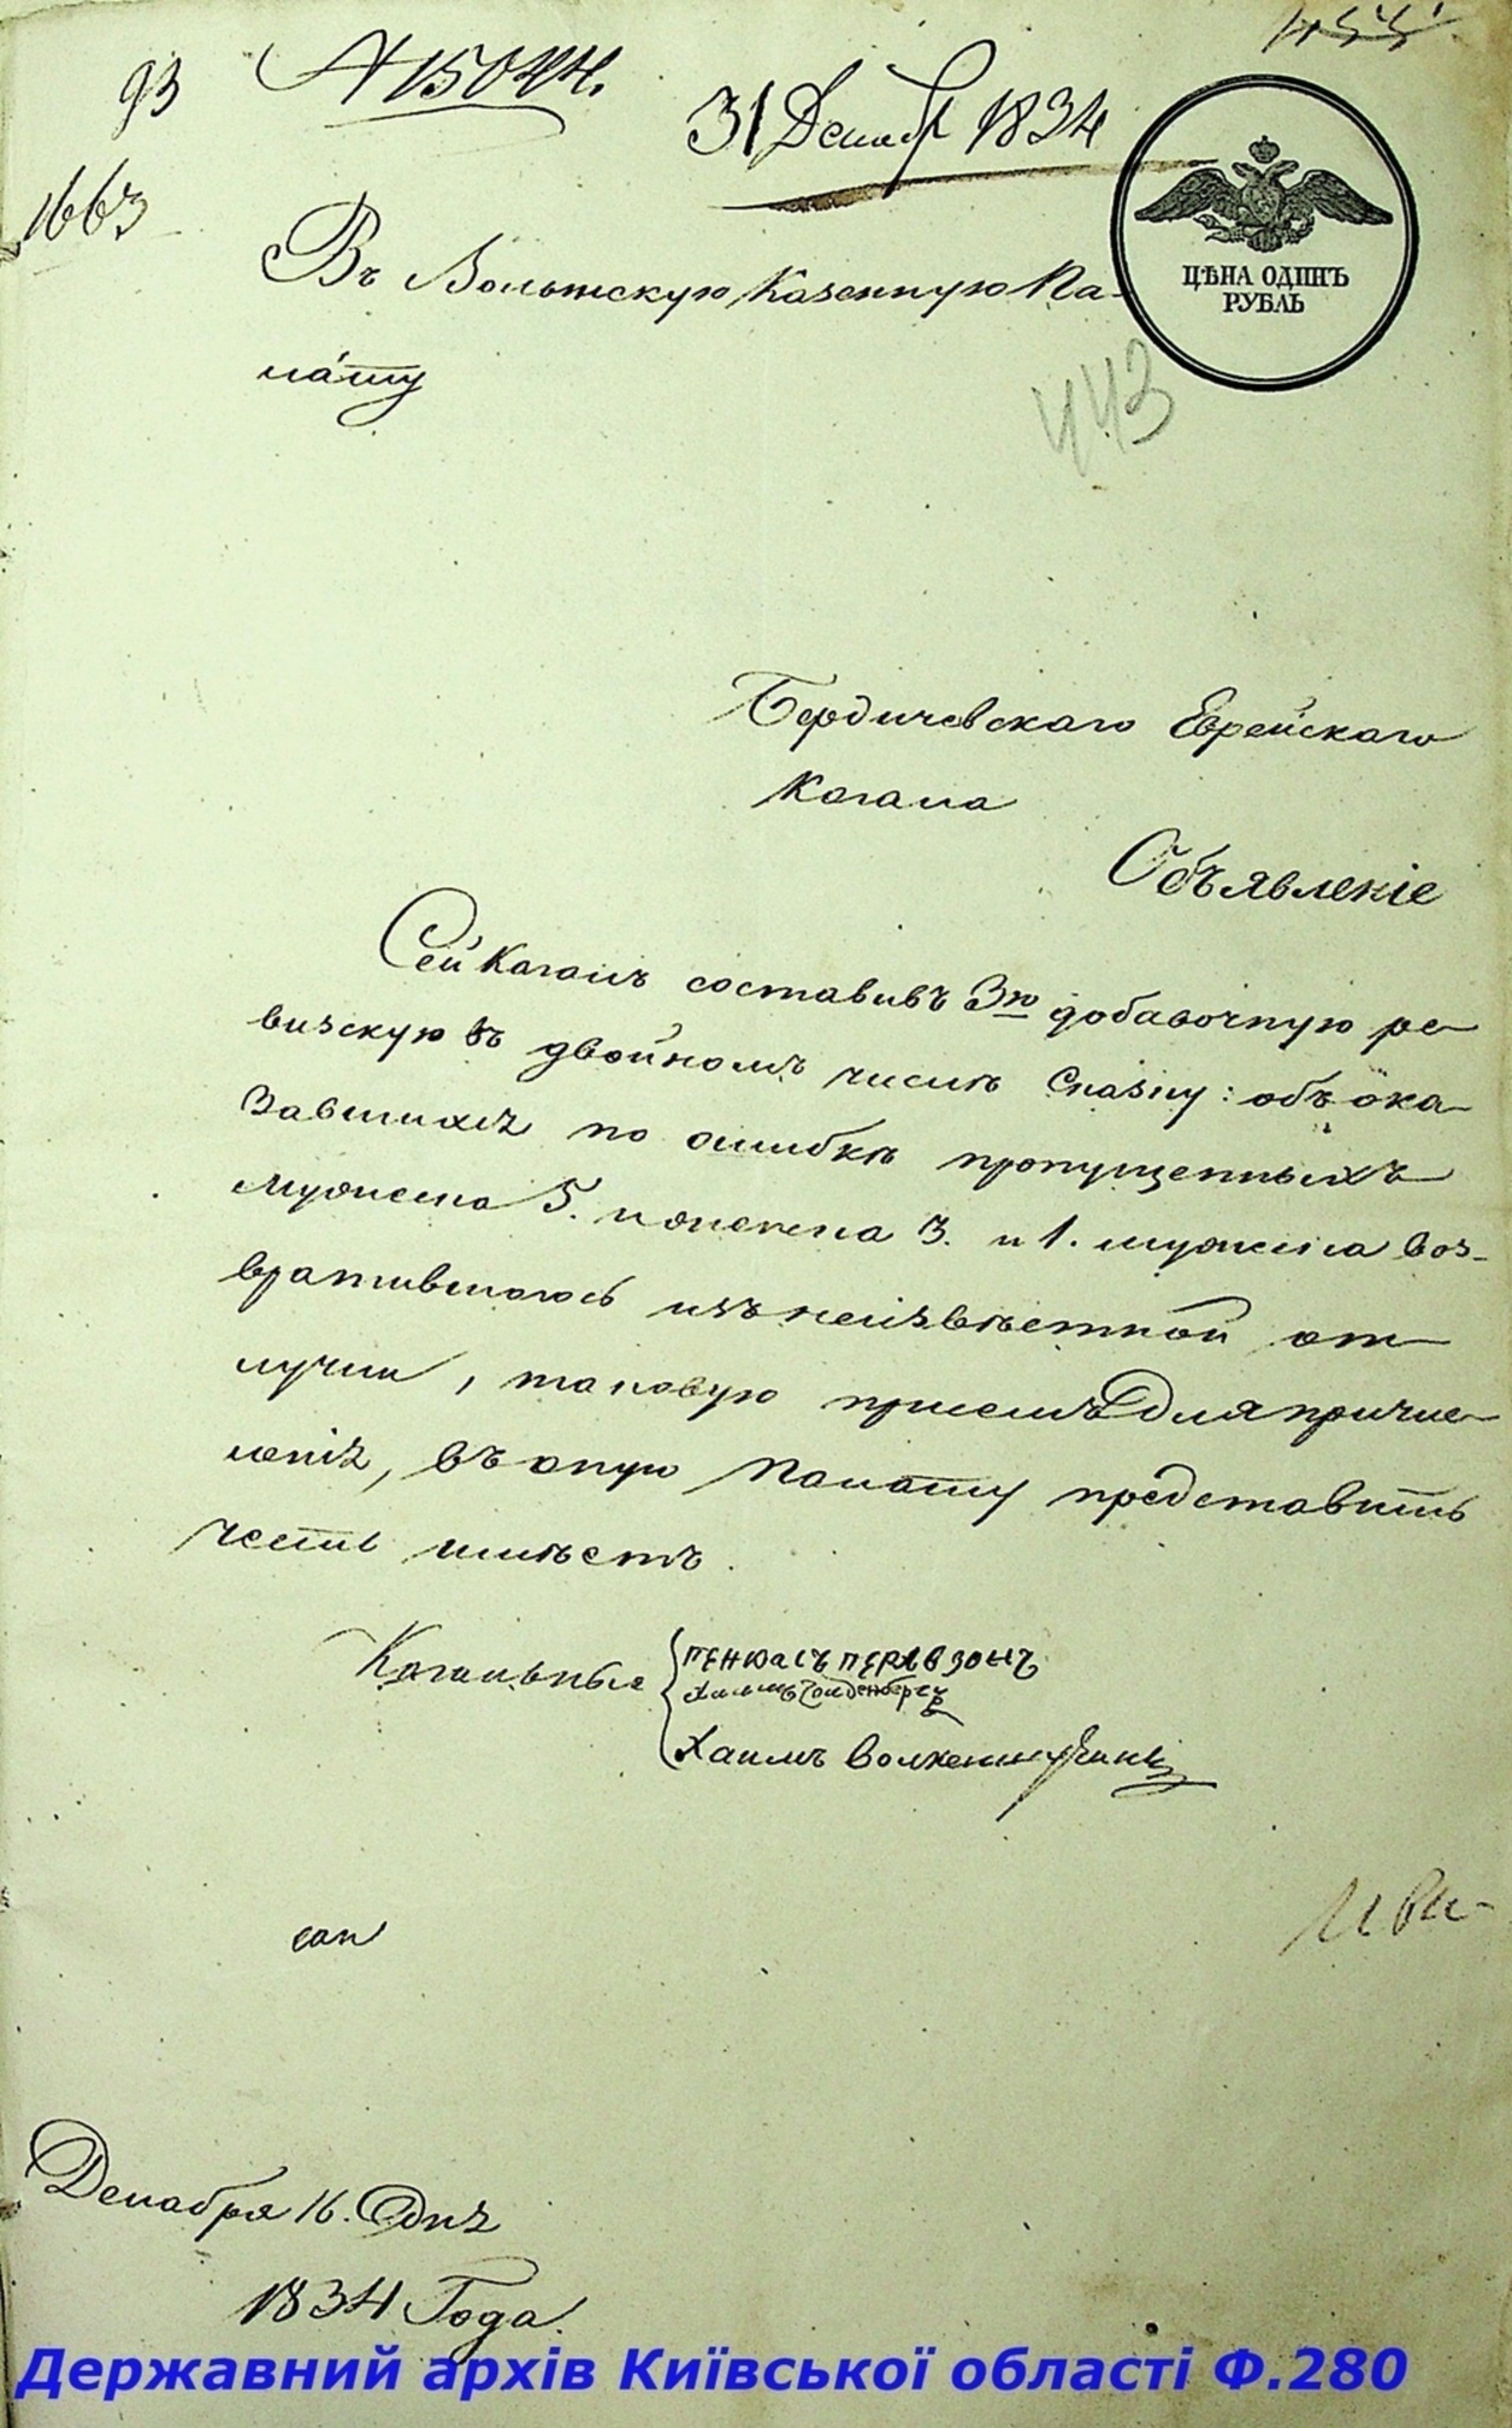 93
№ 15044.
31 Декабр 1834
1663
ЦѢНА ОДИНЪ
РУБЛЬ
Въ Волынскую Казенную Па-
лату
443
Бердичевскаго Еврейскаго
Кагала
Объявленіе
Сей Кагалъ составивъ 3ю добавочную ре
визскую въ двойномъ числѣ Сказку: объ ока
завшихся по ошибкѣ пропущенныхъ
мужеска 5. и женска 3. и 1. мужеска воз-
вратившагось изъ неизвѣстной от
лучки, таковую присемъ для причис
ленія, въ оную Палату представить
честь имѣетъ.
Кагальные
ПЕНЮАСЪ ПЕРЕВЗОНЪ
Хаимъ Голденбергъ
Хаимъ
Декабря 16. Дня
1834 Года.
Державний архів Київської області Ф.280